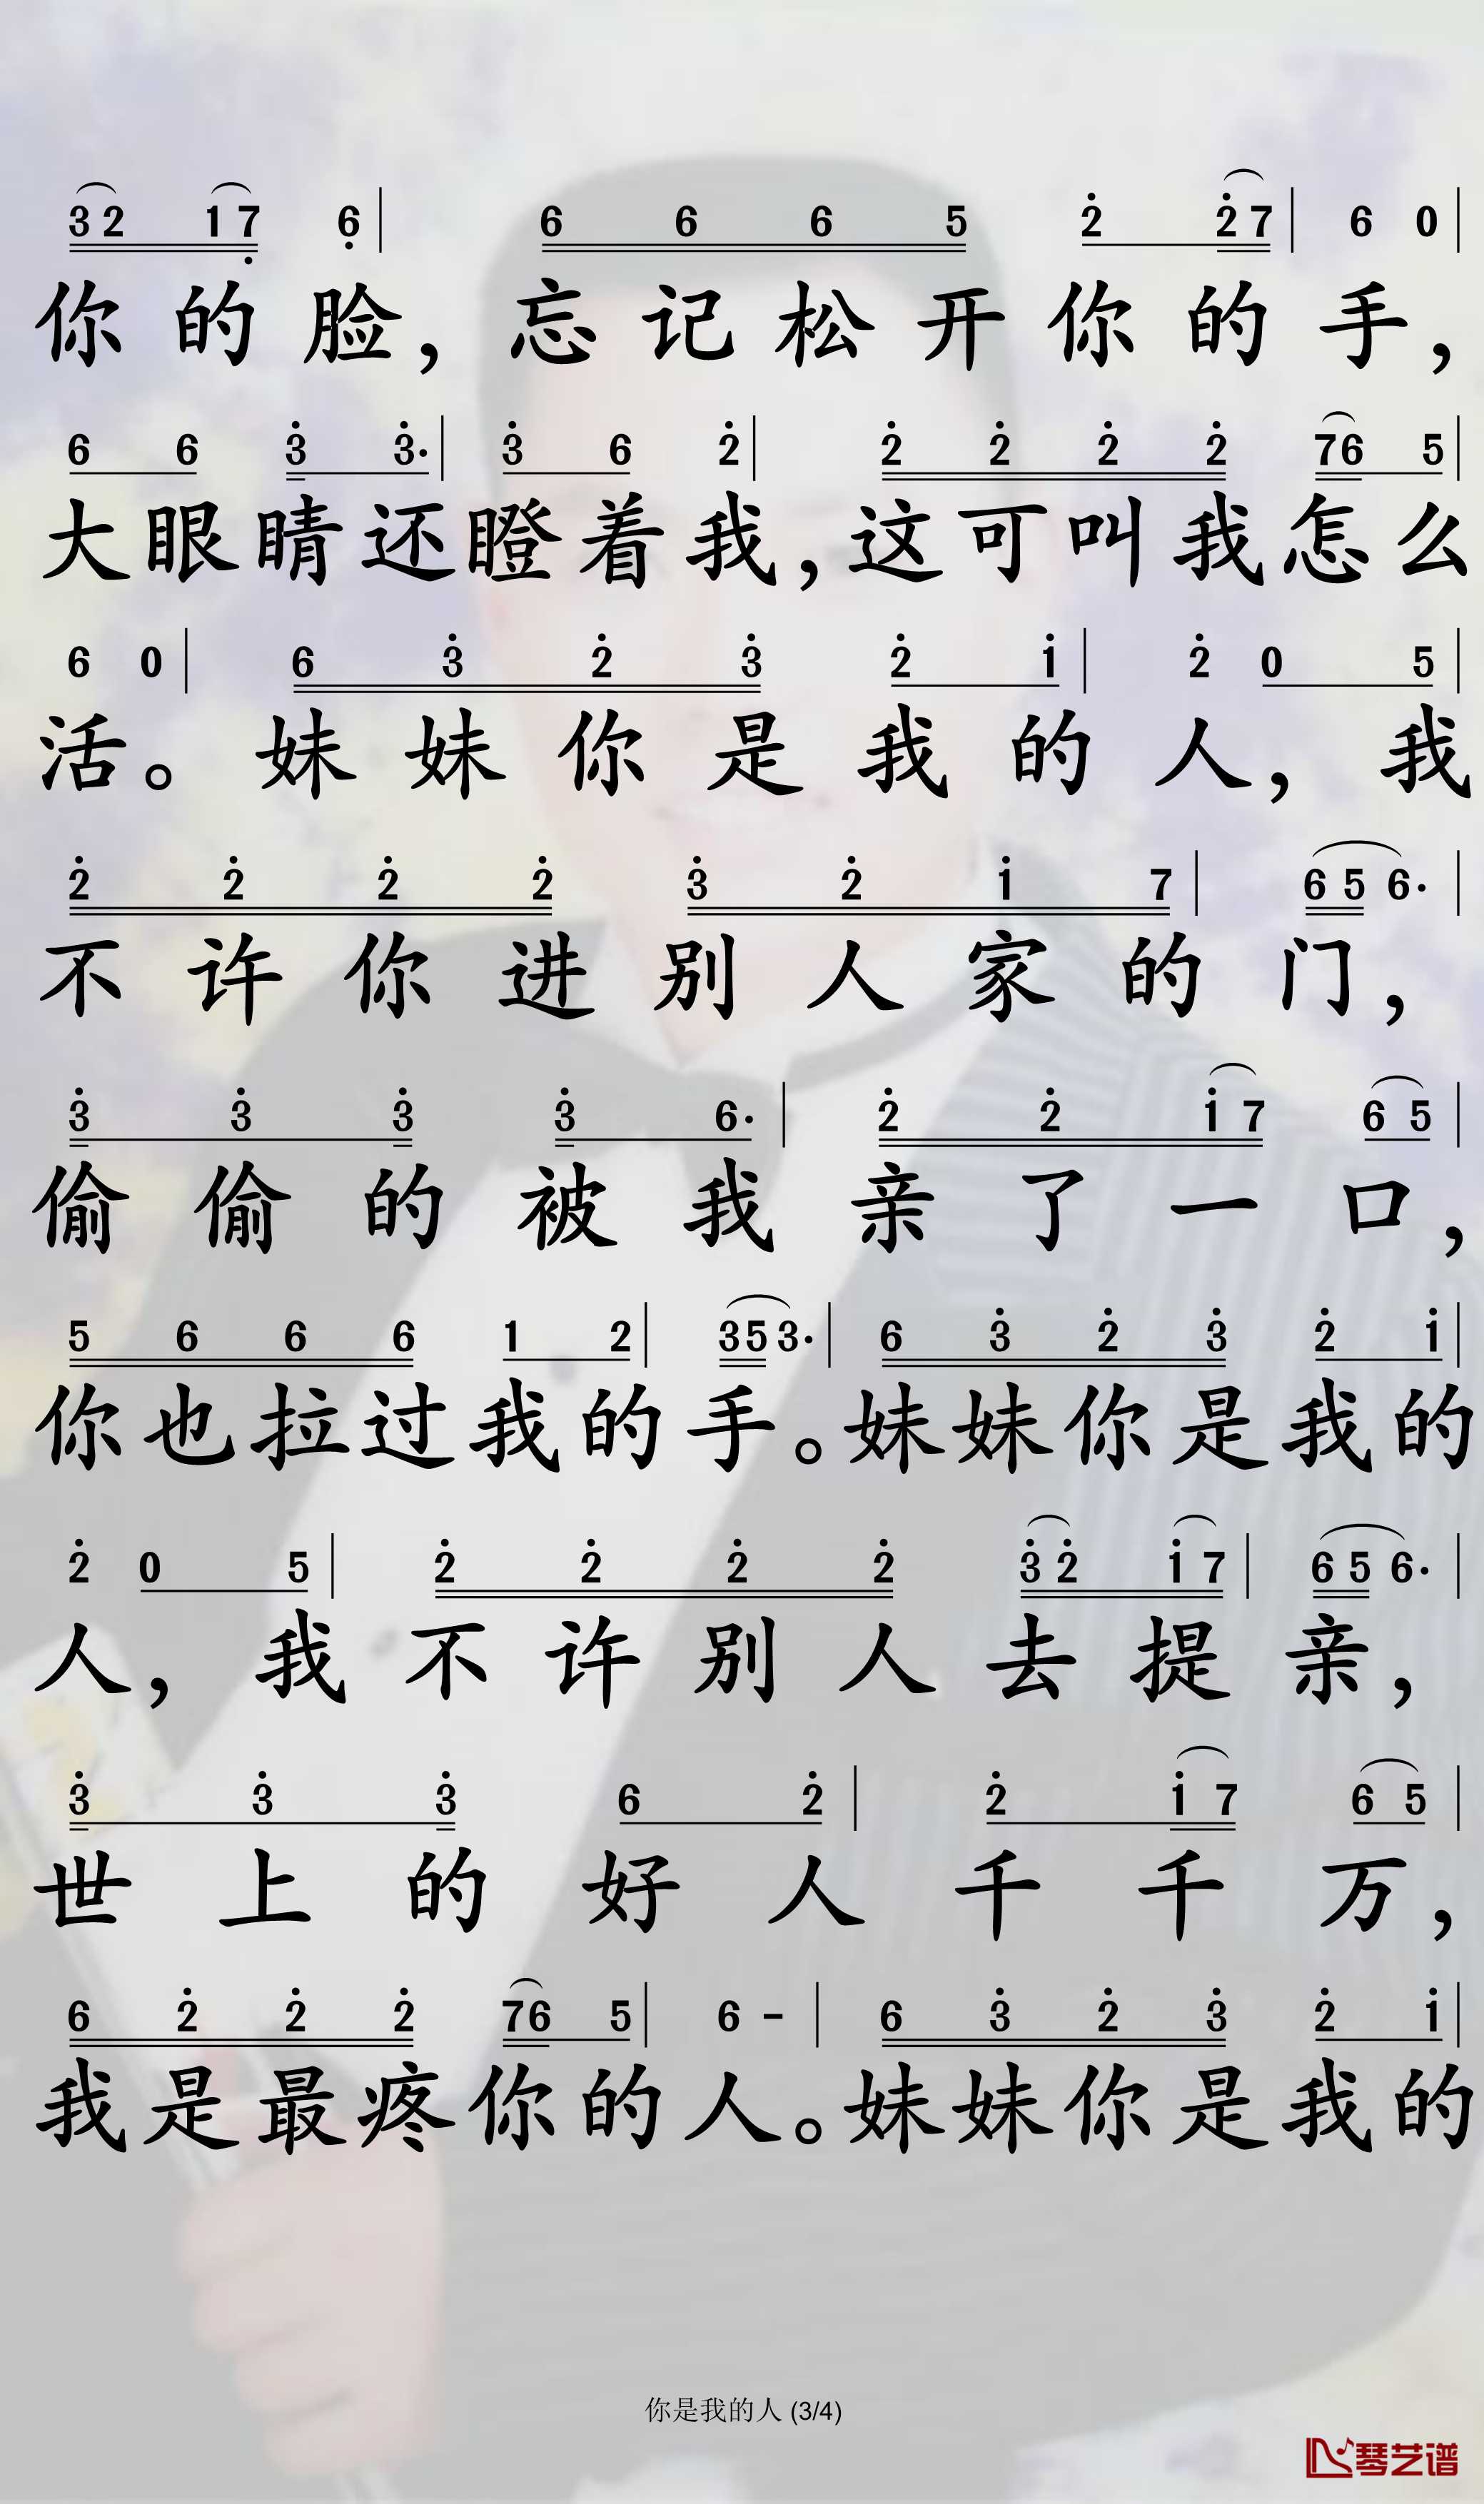 3 2 1 7 6 | 6 6 6 5 2 2 7 | 6 0 |
你的脸，忘记松开你的手，
6 6 3 3· | 3 6 2 | 2 2 2 2 7 6 5 |
大眼睛还瞪着我，这可叫我怎么
6 0 | 6 3 2 3 2 1 | 2 0 5 |
活。妹妹你是我的人，我
2 2 2 2 3 2 1 7 | 6 5 6· |
不许你进别人家的门，
3 3 3 3 6· | 2 2 1 7 6 5 |
偷偷的被我亲了一口，
5 6 6 6 1 2 | 3 5 3· | 6 3 2 3 2 1 |
你也拉过我的手。妹妹你是我的
2 0 5 | 2 2 2 2 3 2 1 7 | 6 5 6· |
人，我不许别人去提亲，
3 3 3 6 2 | 2 1 7 6 5 |
世上的好人千千万，
6 2 2 2 7 6 5 | 6 - | 6 3 2 3 2 1 |
我是最疼你的人。妹妹你是我的
你是我的人 (3/4)
琴艺谱